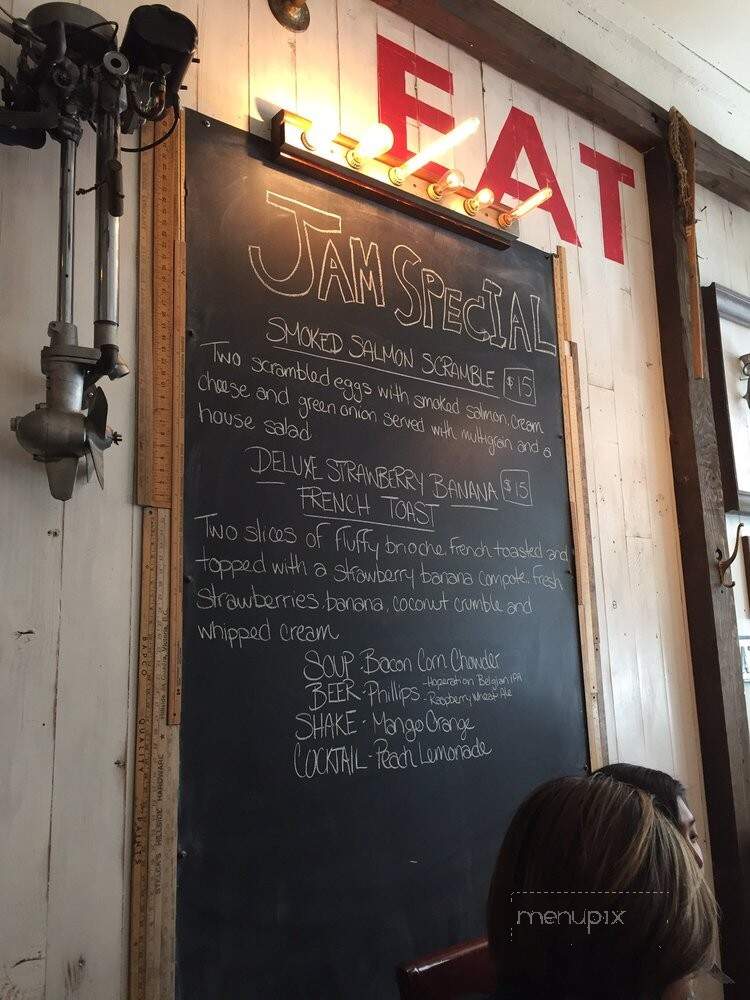 EAT
JAM SPECIAL
SMOKED SALMON SCRAMBLE $15
Two scrambled eggs with smoked salmon, cream
cheese and green onion served with multigrain and a
house salad
DELUXE STRAWBERRY BANANA $15
FRENCH TOAST
Two slices of fluffy brioche french toasted and
topped with a strawberry banana compote, fresh
strawberries, banana, coconut crumble and
whipped cream
SOUP - Bacon Corn Chowder
BEER - Phillips - Hoperation Belgian IPA
- Raspberry Wheat Ale
SHAKE - Mango Orange
COCKTAIL - Peach Lemonade
BAPCO QUALITY PAINTS
HILLSIDE HARDWARE
menupix